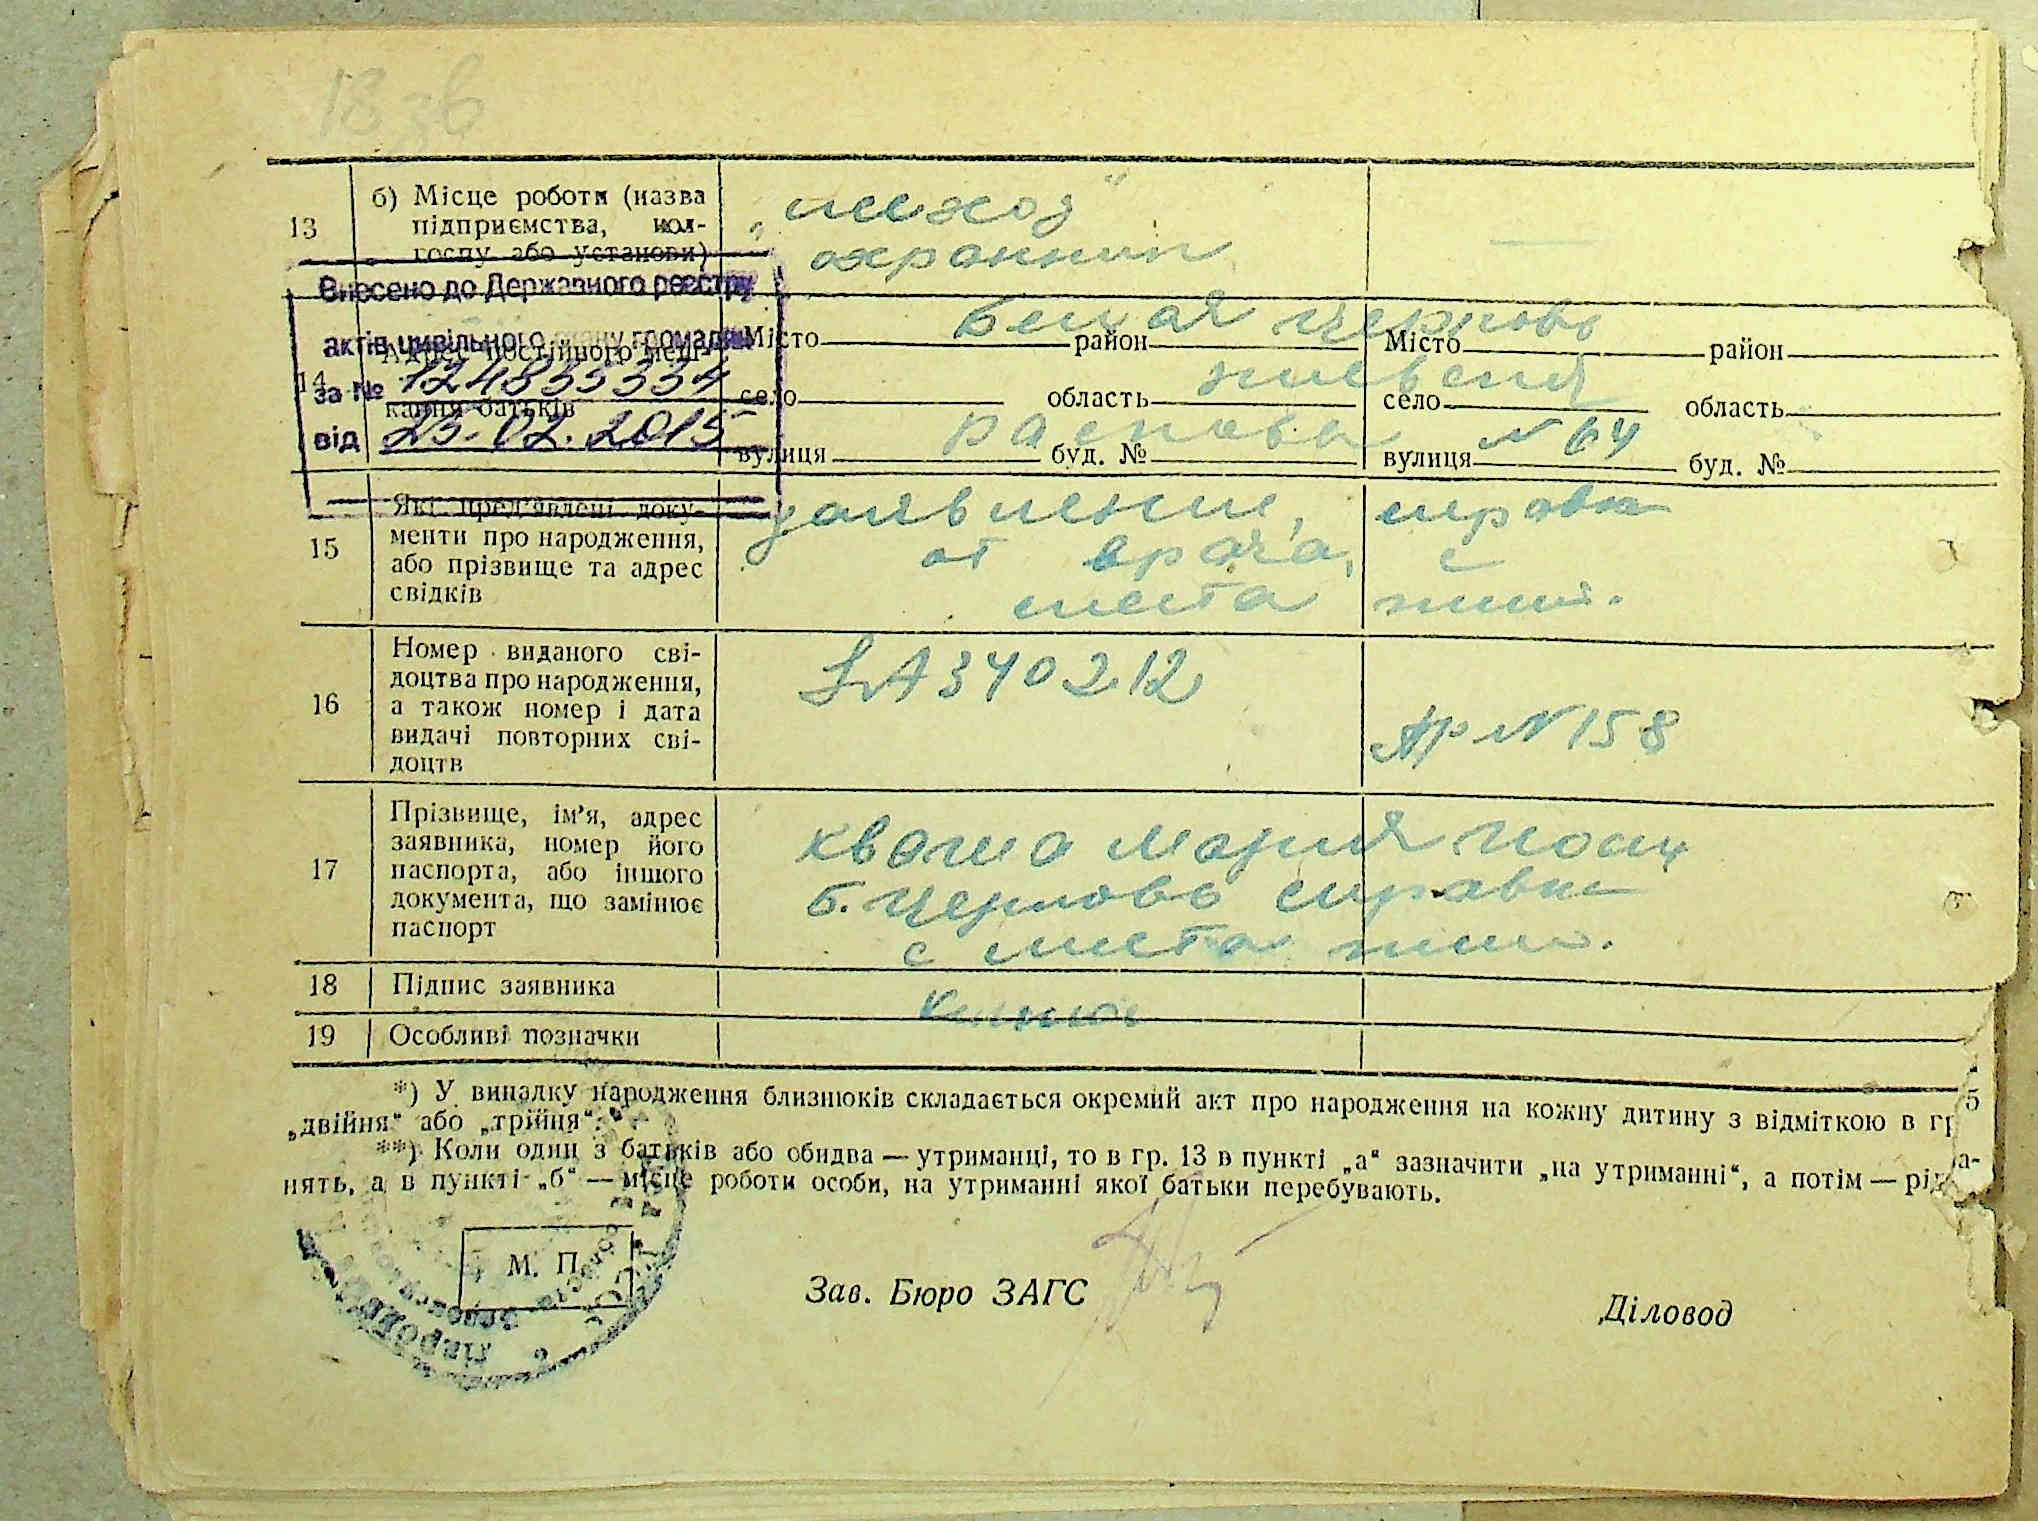 18 зв
13
б) Місце роботи (назва
підприємства, кол-
госпу або установи)
охранник
Внесено до Державного реєстру
актів цивільного стану громадян
за № 124835334
від 23.02.2015
14
Адрес постійного меш-
кання батьків
Белая Церковь
Місто район Місто район
киевская
село область село область
N 64
вулиця буд. № вулиця буд. №
15
Які пред'явлені доку-
менти про народження,
або прізвище та адрес
свідків
заявление, справка
от врача, с
места жит.
16
Номер виданого сві-
доцтва про народження,
а також номер і дата
видачі повторних сві-
доцтв
340212
N 158
17
Прізвище, ім'я, адрес
заявника, номер його
паспорта, або іншого
документа, що замінює
паспорт
Кваша Мария
б. Церковь справка
с места жит.
18 Підпис заявника
19 Особливі позначки
*) У випадку народження близнюків складається окремий акт про народження на кожну дитину з відміткою в гр 5
„двійня“ або „трійня“.
**) Коли один з батьків або обидва — утриманці, то в гр. 13 в пункті „а“ зазначити „на утриманні“, а потім — рід за-
нять, а в пункті „б“ — місце роботи особи, на утриманні якої батьки перебувають.
М. П.
Зав. Бюро ЗАГС
Діловод